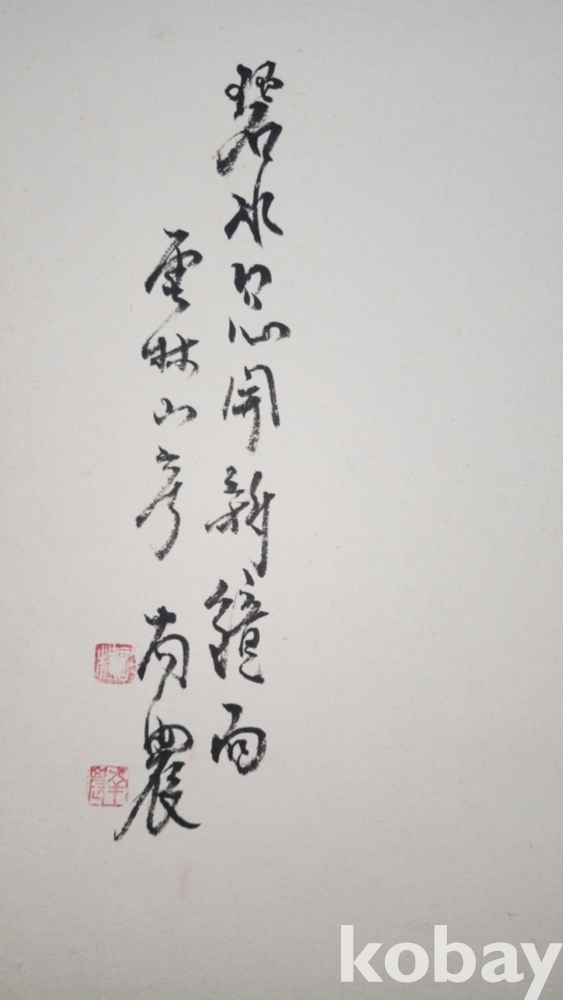 碧水忽開新鏡面
雲林山房
南農
kobay